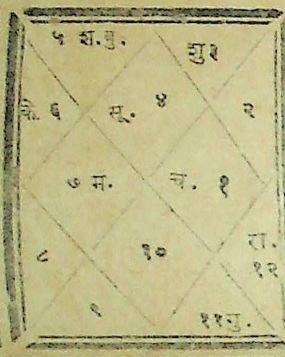 ५ श.बु.
शु ३
के. ६
सू. ४
२
७ म.
च. १
८
१०
रा.
१२
९
११ गु.